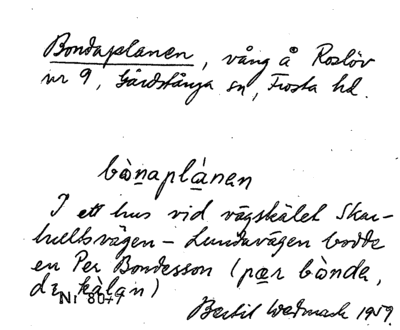 Bondaplanen, vång å Roslöv
nr 9, Gårdstånga sn, Frosta hd.
bònaplánen
I ett hus vid vägskälet Skar-
hultsvägen – Lundavägen bodde
en Per Bondesson (pær bònde,
dr kàlan)
Nr 8077
Bertil Wedmark 1959.